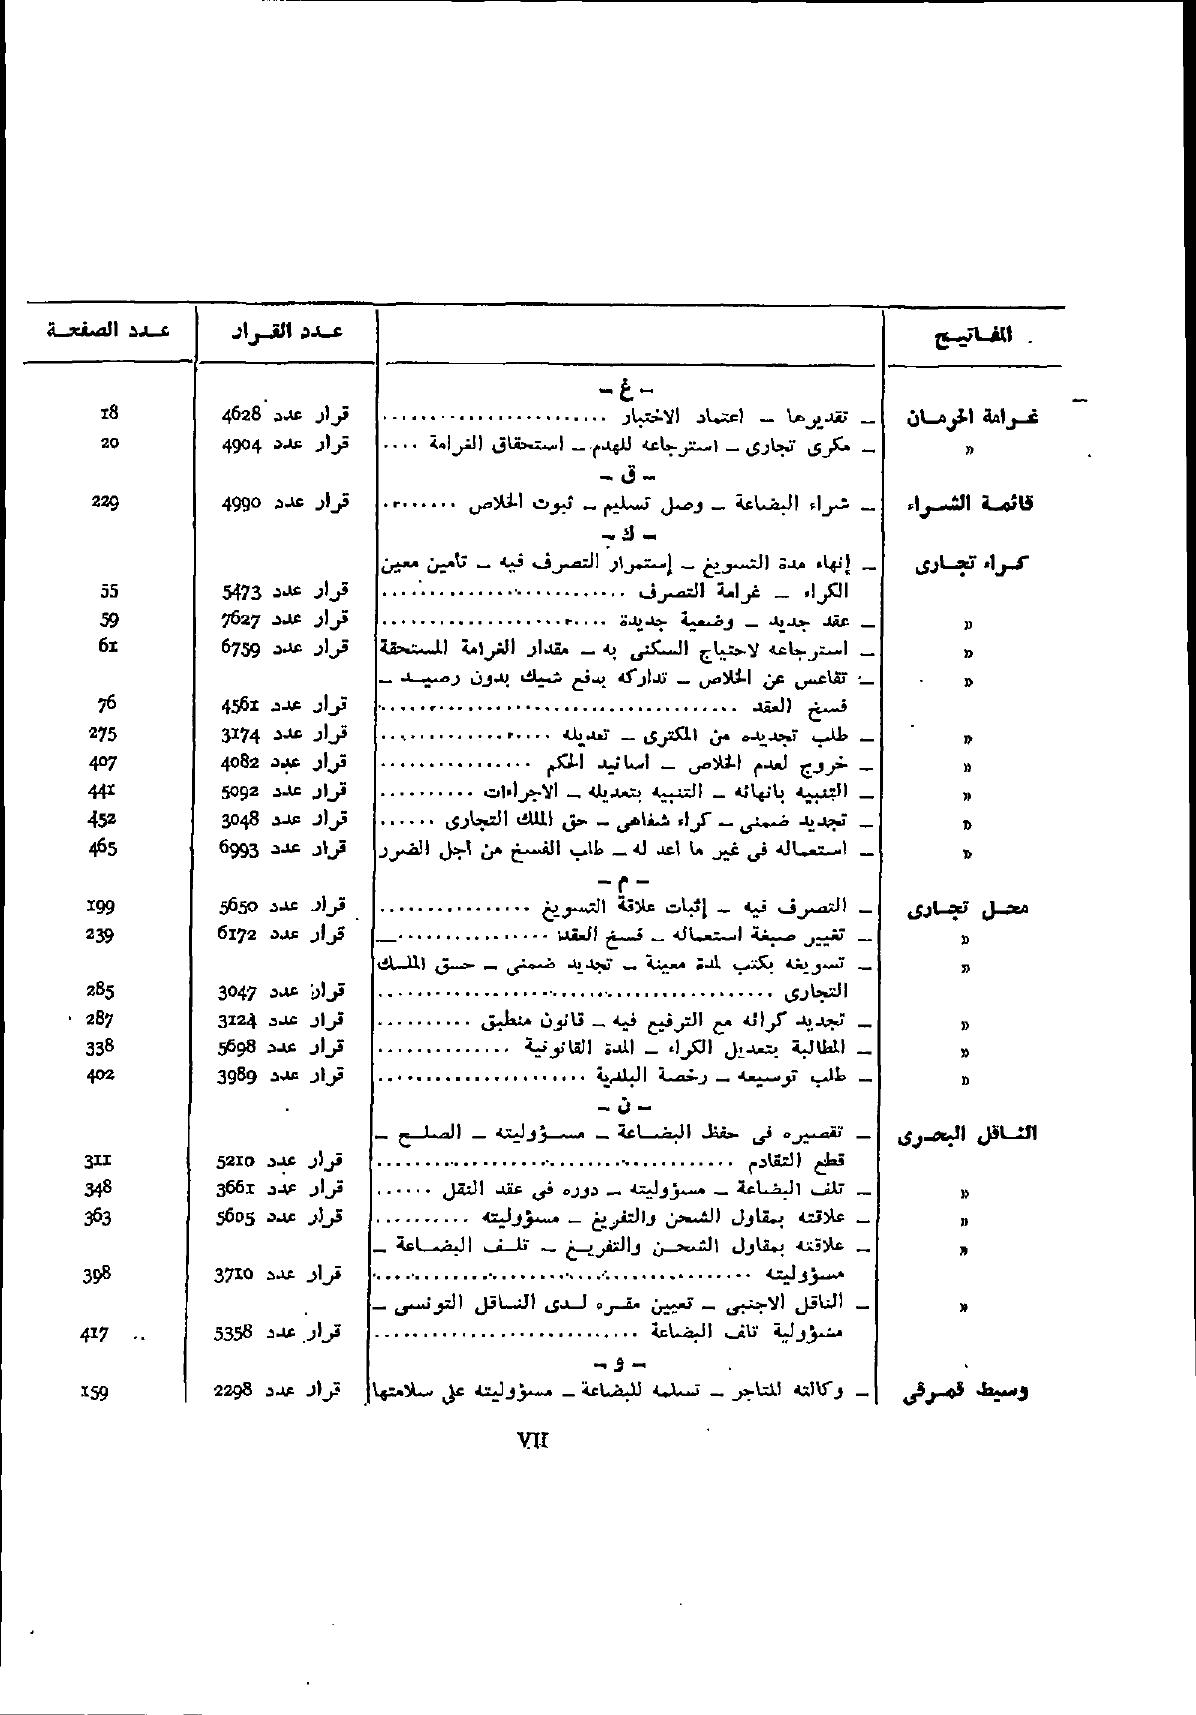 المفاتيح عدد القرار عدد الصفحة
– غ –
غرامة الحرمان – تقديرها – اعتماد الاختبار ........................ قرار عدد 4628 18
» – مكرى تجارى – استرجاعه للهدم – استحقاق الغرامة .... قرار عدد 4904 20
– ق –
قائمة الشراء – شراء البضاعة – وصل تسليم – ثبوت الخلاص ........ قرار عدد 4990 229
– ك –
كراء تجارى – إنهاء مدة التسويغ – إستمرار التصرف فيه – تأمين معين
الكراء – غرامة التصرف .......................... قرار عدد 5473 55
» – عقد جديد – وضعية جديدة ........................ قرار عدد 7627 59
» – استرجاعه لاحتياج السكنى به – مقدار الغرامة المستحقة قرار عدد 6759 61
» – تقاعس عن الخلاص – تداركه بدفع شيك بدون رصيد –
فسخ العقد ...................................... قرار عدد 4561 76
» – طلب تجديده من المكترى – تعديله .................. قرار عدد 3174 275
» – خروج لعدم الخلاص – اسانيد الحكم ................ قرار عدد 4082 407
» – التنبيه بانهائه – التنبيه بتعديله – الاجراءات .......... قرار عدد 5092 441
» – تجديد ضمنى – كراء شفاهى – حق الملك التجارى ...... قرار عدد 3048 452
» – استعماله فى غير ما اعد له – طلب الفسخ من اجل الضرر قرار عدد 6993 465
– م –
محل تجارى – التصرف فيه – إثبات علاقة التسويغ ................ قرار عدد 5650 199
» – تغيير صبغة استعماله – فسخ العقد ................ قرار عدد 6172 239
» – تسويغه بكتب لمدة معينة – تجديد ضمنى – حق الملك
التجارى ........................................ قرار عدد 3047 285
» – تجديد كرائه مع الترفيع فيه – قانون منطبق .......... قرار عدد 3124 287
» – المطالبة بتعديل الكراء – المدة القانونية .............. قرار عدد 5698 338
» – طلب توسيعه – رخصة البلدية ...................... قرار عدد 3989 402
– ن –
الناقل البحرى – تقصيره فى حفظ البضاعة – مسؤوليته – الصلح –
قطع التقادم .................................... قرار عدد 5210 311
» – تلف البضاعة – مسؤوليته – دوره فى عقد النقل ...... قرار عدد 3661 348
» – علاقته بمقاول الشحن والتفريغ – مسؤوليته .......... قرار عدد 5605 363
» – علاقته بمقاول الشحن والتفريغ – تلف البضاعة –
مسؤوليته ...................................... قرار عدد 3710 398
» – الناقل الاجنبى – تعيين مقره لدى الناقل التونسى –
مسؤولية تلف البضاعة ............................ قرار عدد 5358 417
– و –
وسيط قمرقى – وكالته للمتاجر – تسلمه للبضاعة – مسؤوليته على سلامتها قرار عدد 2298 159
VII